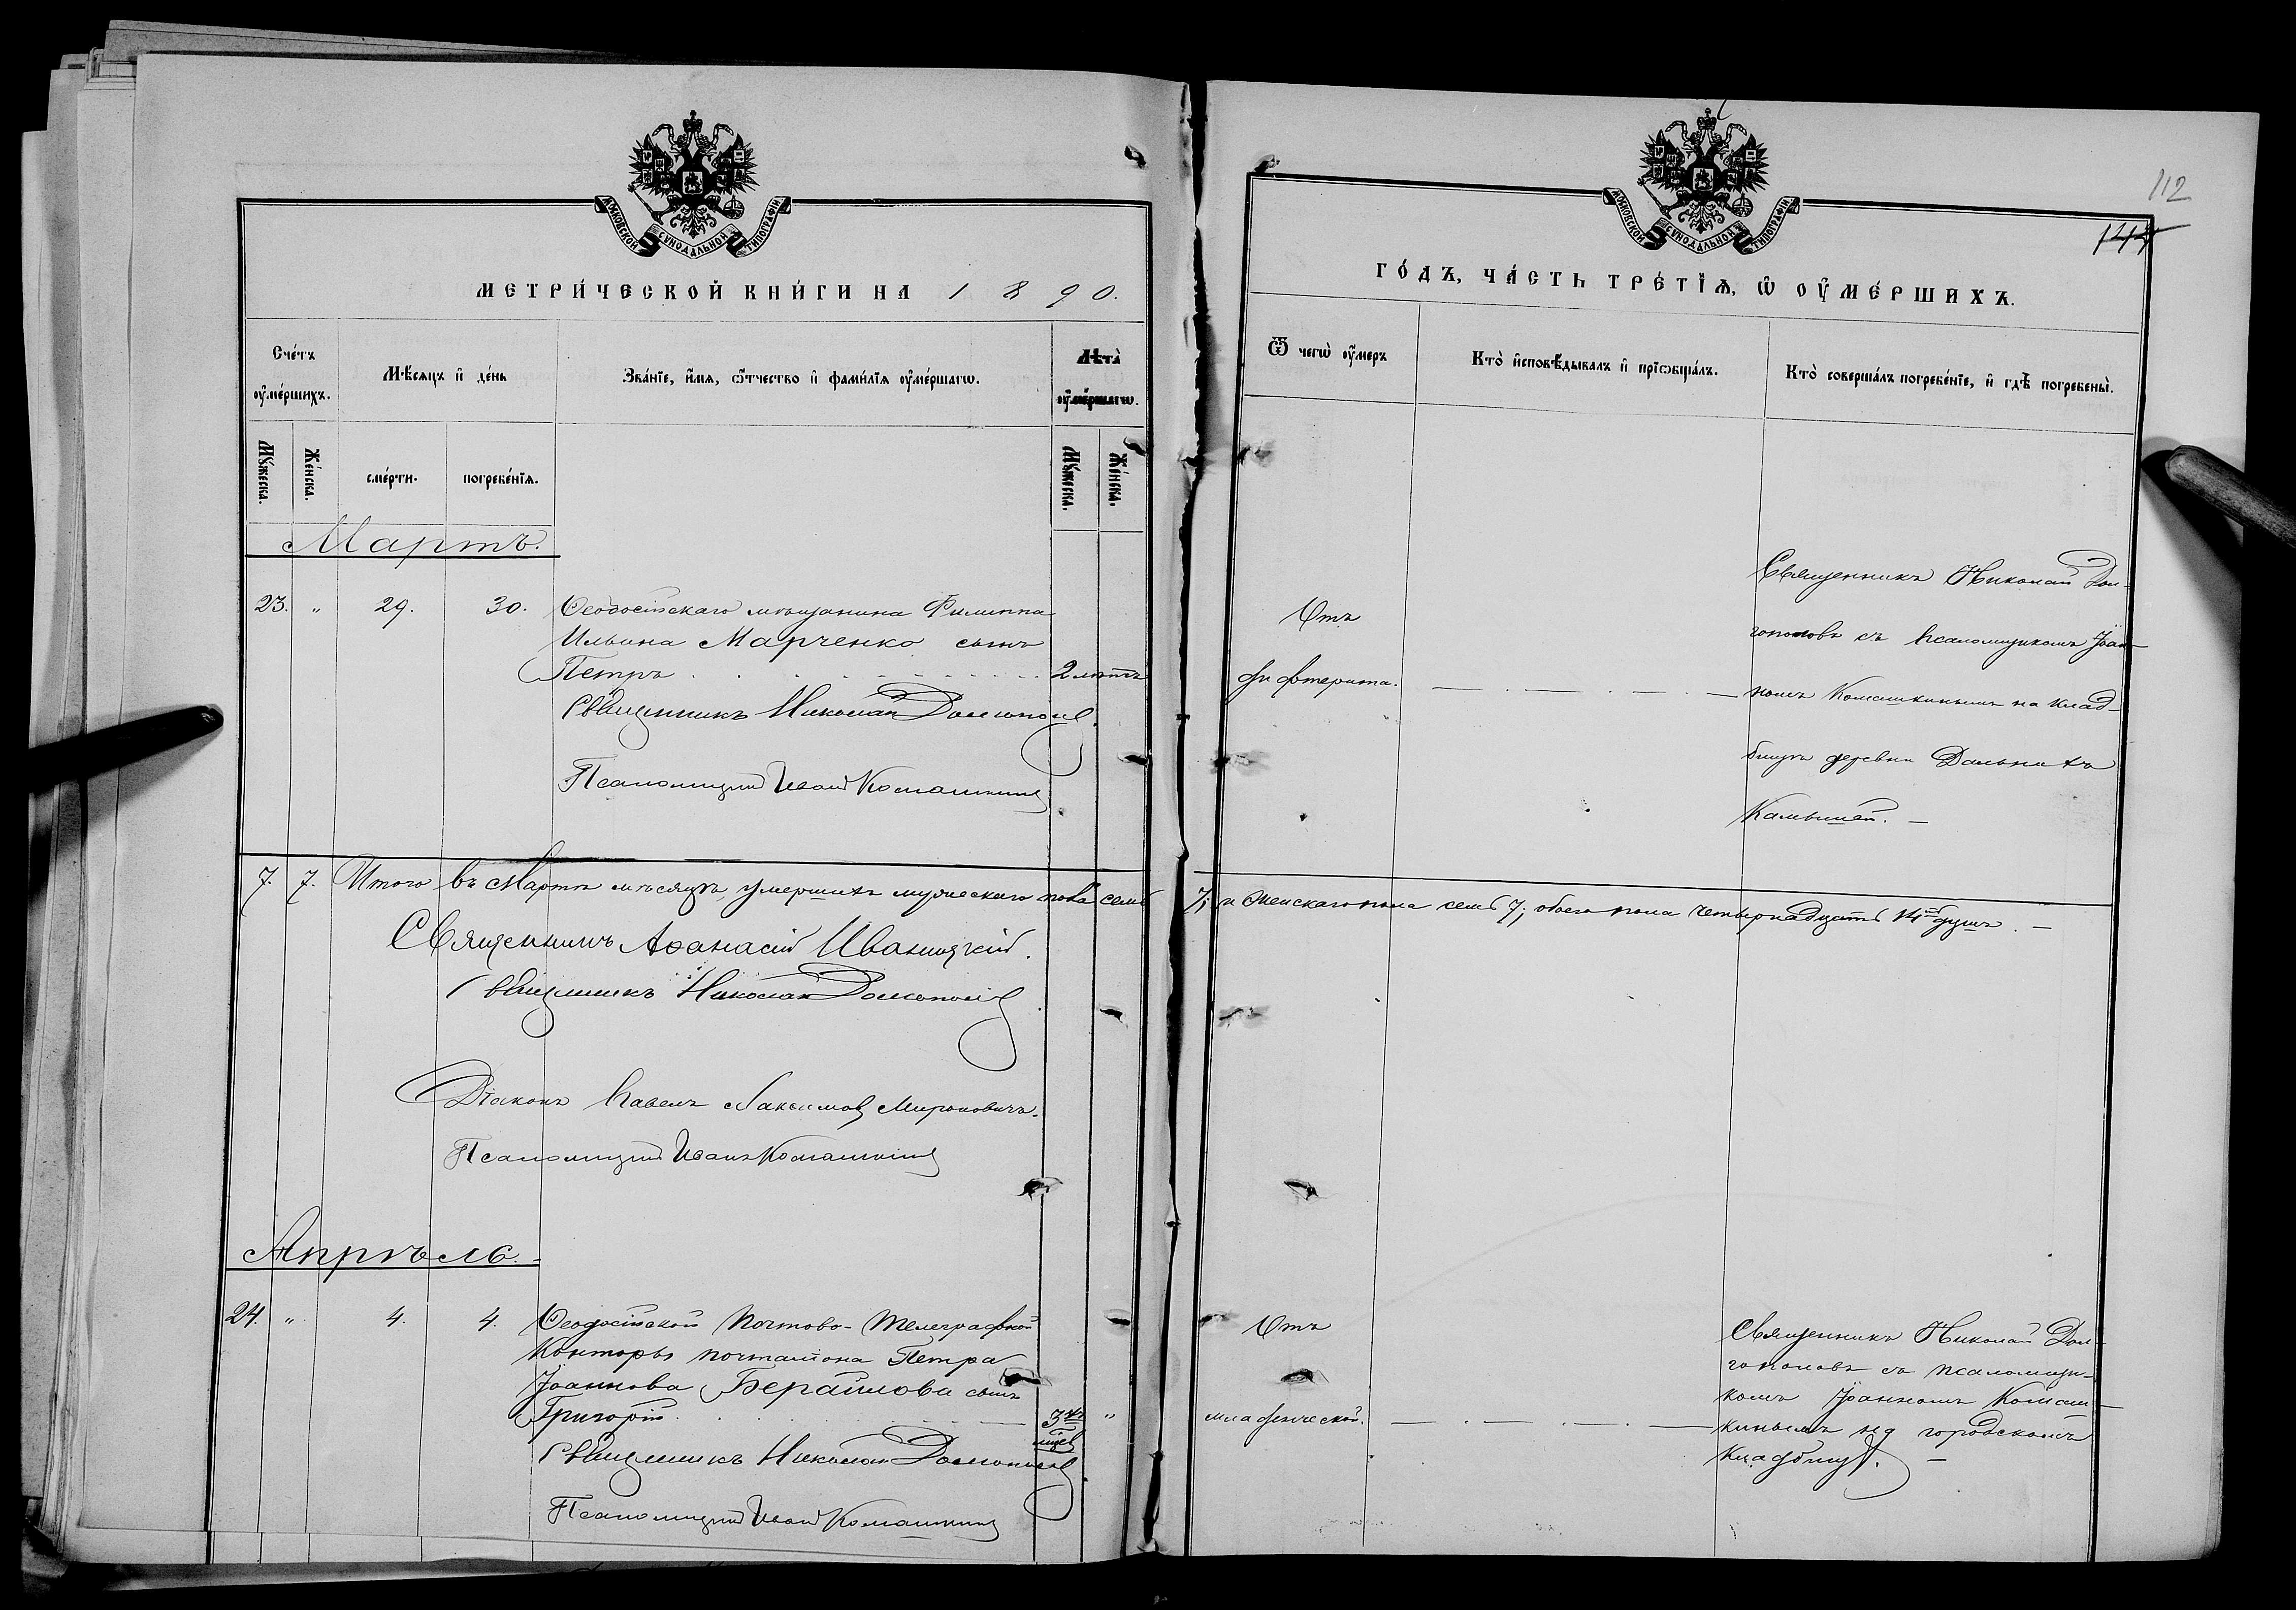 МОСКОВСКОЙ СѴНОДАЛЬНОЙ ТИПОГРАФІИ
МЕТРИ́ЧЕСКОЙ КНИ́ГИ НА 1890.
Сче́тъ оу҆ме́ршихъ.
Мѣ́сяцъ и҆ де́нь
Зва́нїе, и҆́мѧ, ѻ҆́тчество и҆ фами́лїѧ оу҆ме́ршагѡ.
Лѣта̀ оу҆ме́ршагѡ.
Му́жеска.
Же́нска.
сме́рти.
погребе́нїѧ.
Му́жеска.
Же́нска.
Мартъ.
23. " 29. 30. Ѳеодосійскаго мѣщанина Филиппа
Ильина Марченко сынъ
Петръ . . . . . . . . 2 лѣтъ
Священникъ Николай Долгополов.
Псаломщикъ Иван Комашкинъ
7. 7. Итого въ Мартѣ мѣсяцѣ умершихъ мужескаго пола семь
Священникъ Аѳанасій Иваницкій.
Священникъ Николай Долгополов
Діаконъ Павелъ Максимов Мироновичъ.
Псаломщикъ Иванъ Комашкинъ
Апрѣль.
24. " 4. 4. Ѳеодосійской Почтово-Телеграфной
Конторы почталіона Петра
Іоаннова Берайлова сынъ
Григорій . . . 3хъ "
мцев
Священникъ Николай Долгополов
Псаломщикъ Иван Комашкинъ
112
144
МОСКОВСКОЙ СѴНОДАЛЬНОЙ ТИПОГРАФІИ
ГО́ДЪ, ЧА́СТЬ ТРЕ́ТЇѦ, Ѡ҆ ОУ҆МЕ́РШИХЪ.
Ѿ чегѡ̀ оу҆́меръ
Кто̀ и҆сповѣ́дывалъ и҆ прїѡбща́лъ.
Кто̀ соверша́лъ погребе́нїе, и҆ гдѣ̀ погребены̀.
Отъ
дифтерита.
Священникъ Николай Дол-
гополовъ съ псаломщикомъ Іоан-
номъ Комашкинымъ на клад-
бищѣ деревни Дальнихъ
Камышей. —
7; и женскаго пола семь 7; обоего пола четырнадцать 14ть душъ. —
Отъ
младенческой.
Священникъ Николай Дол-
гополовъ съ псаломщи-
комъ Іоанномъ Комаш-
кинымъ на городскомъ
кладбищѣ. —